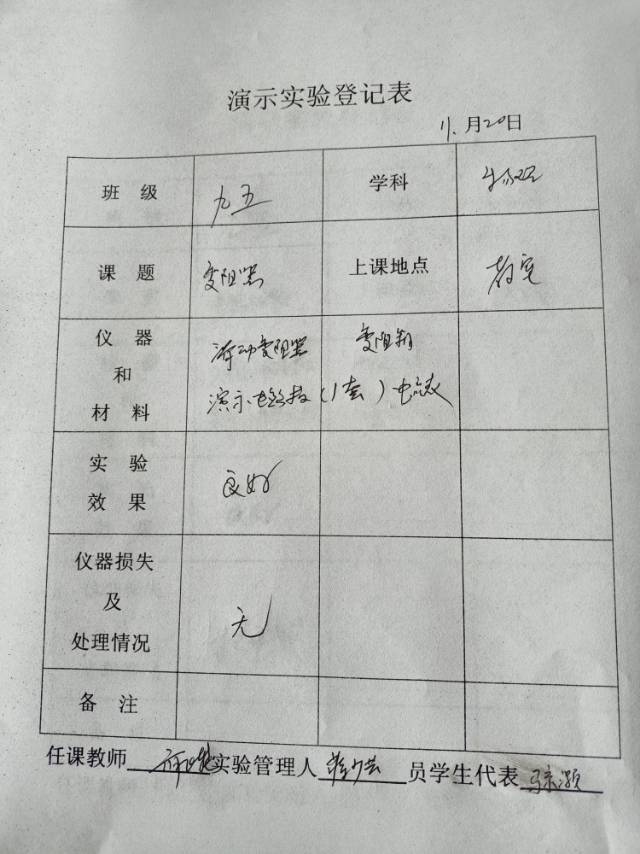 演示实验登记表
11.月20日
班 级 九五 学科 物理
课 题 变阻器 上课地点 教室
仪 器 滑动变阻器 变阻箱
和
材 料 演示电路板(1套) 电流表
实 验
效 果 良好
仪器损失
及
处理情况 无
备 注
任课教师 实验管理人 员学生代表